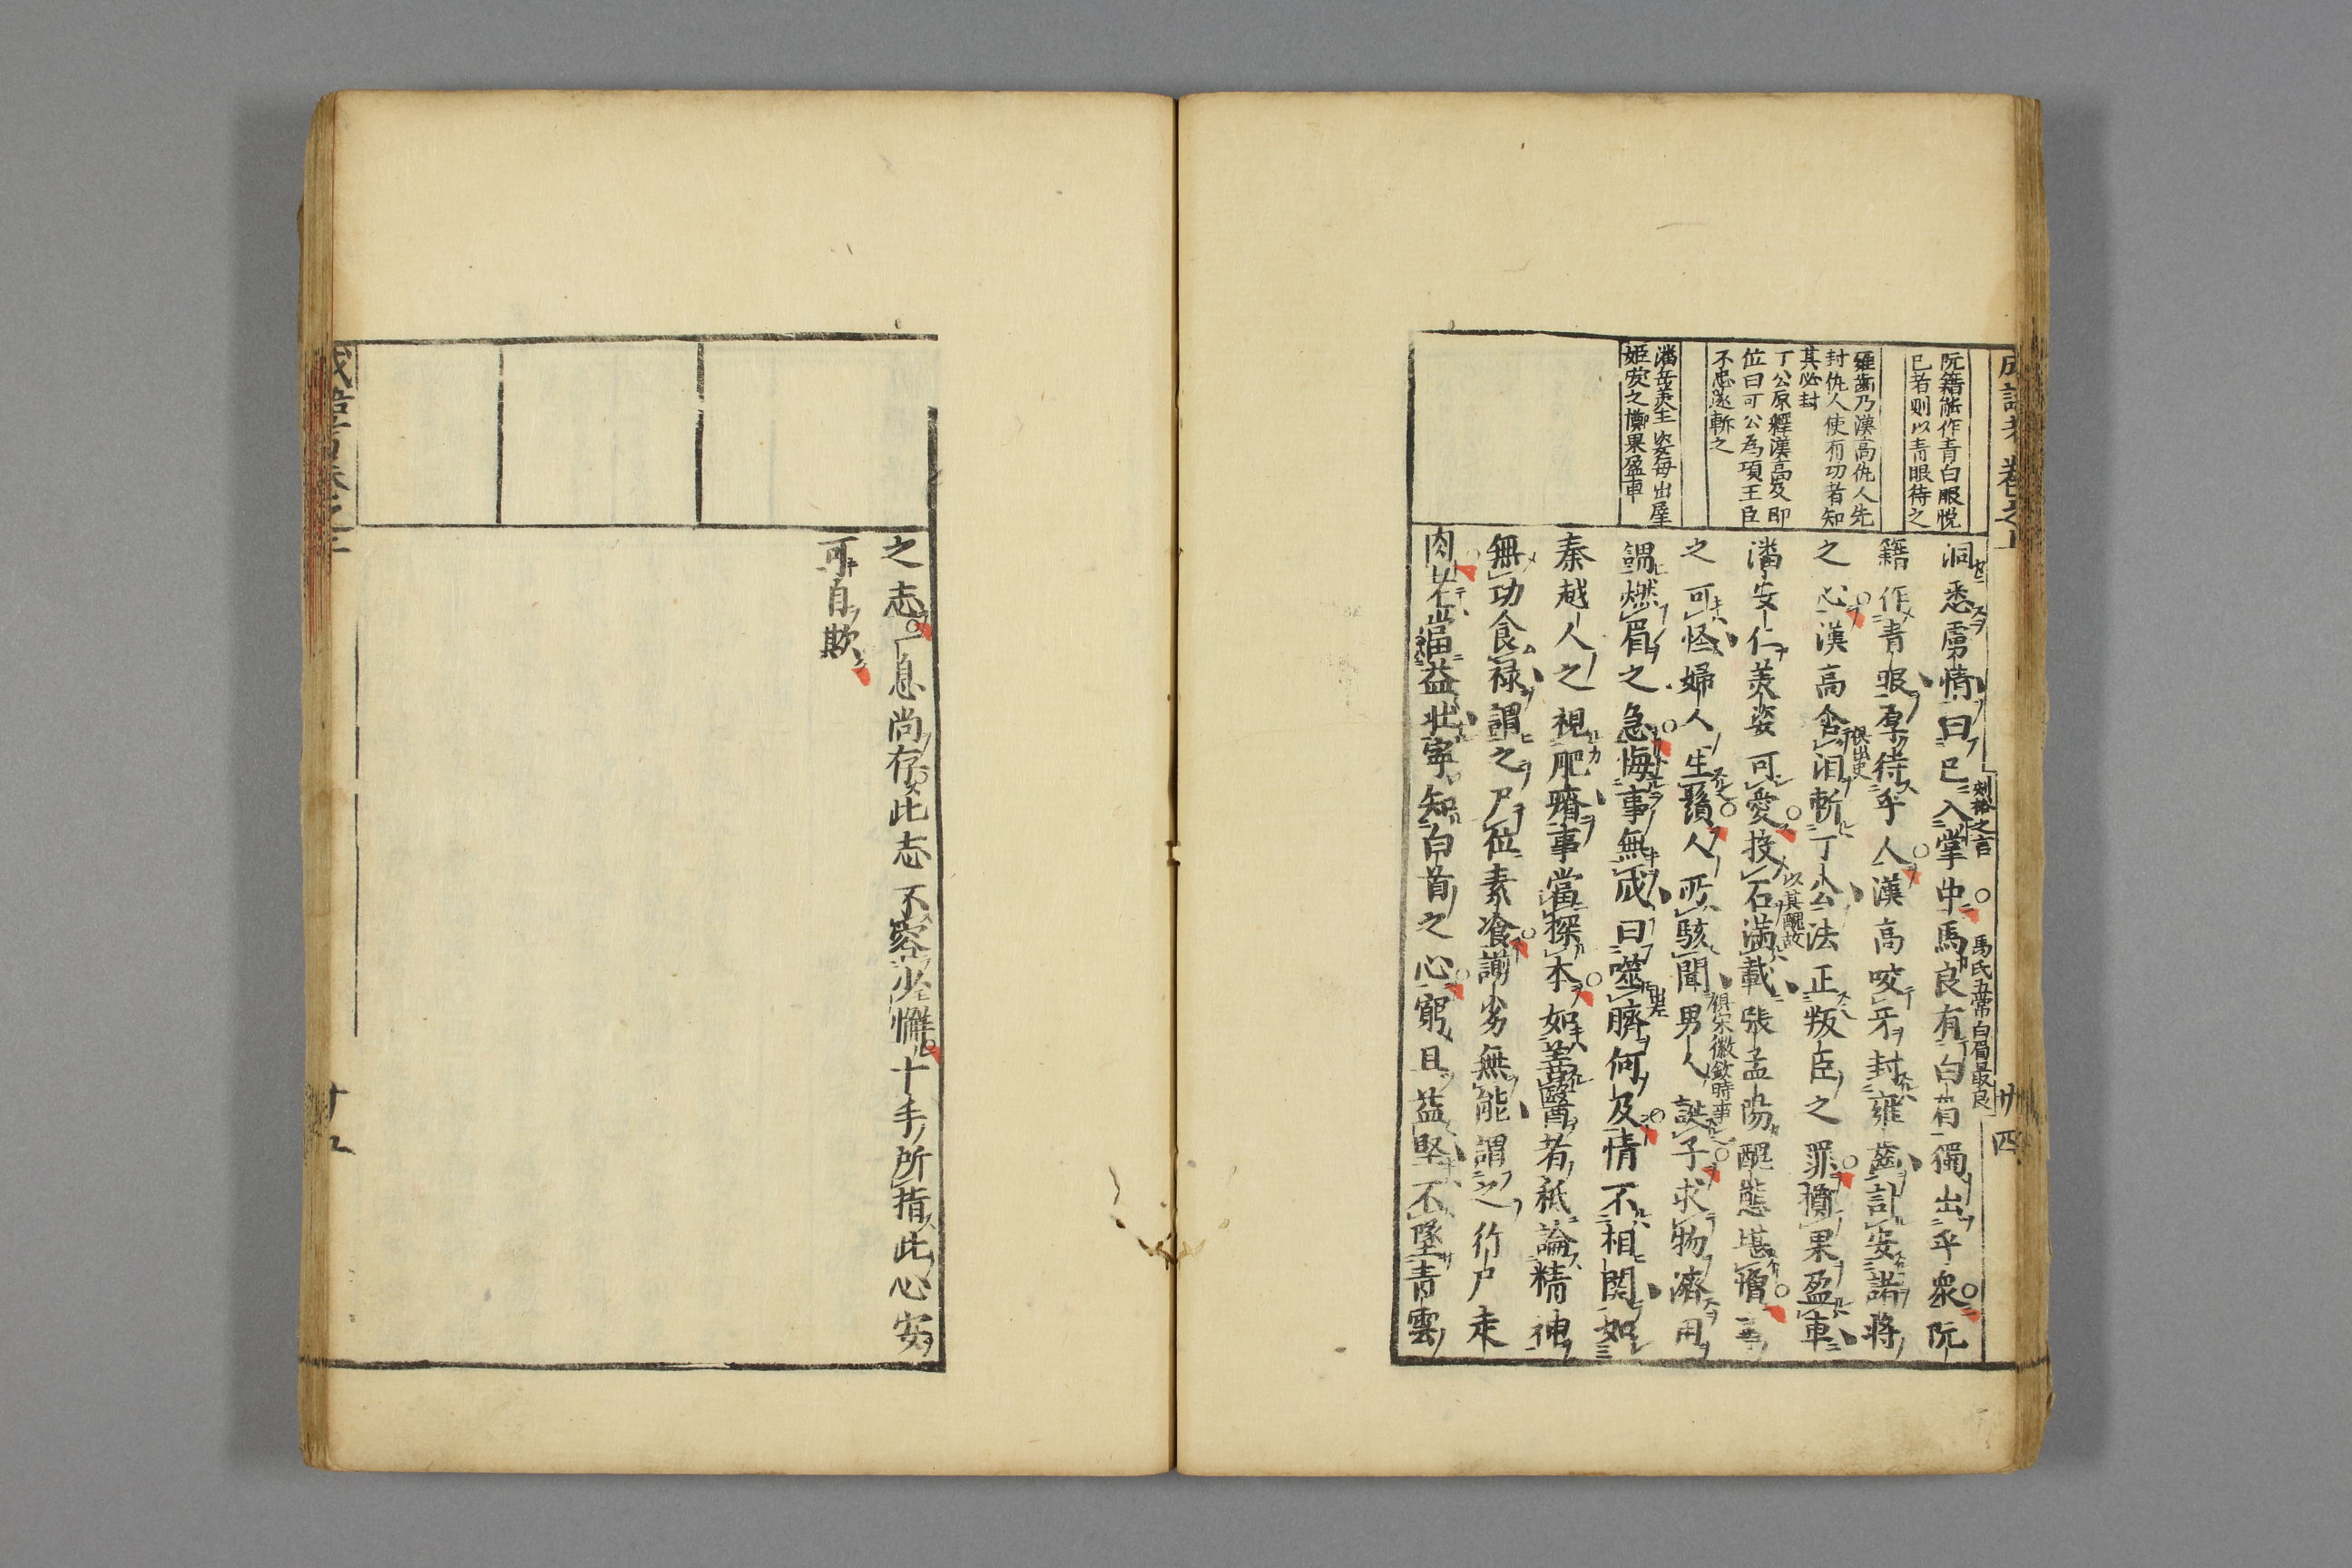 阮籍能作青白眼悦
已者则以青眼待之
雍齒乃漢高仇人先
封仇人使有功者知
其必封
丁公原釋漢高及即
位曰可公為項王臣
不忠遂斬之
潘岳美生姿每出屋
姬安之擲果盈車
洞悉虜情曰已入掌中馬良有白眉獨出乎衆阮
籍作青眼厚待乎人漢高咬牙封雍齒計安諸將
之心漢高含泪斬丁公法正叛臣之罪擲果盈車
潘安仁美姿可愛投石滿載張孟陽醜態堪憎事
之可怪婦人生鬚人所駭聞男人誕子求物濟用
謂燃眉之急悔事無成曰噬臍何及情不相関如
秦越人之視肥瘠事當探本如善醫者祇論精神
無功食禄謂之尸位素飡謭劣無能謂之行尸走
肉老當益壯寧知白首之心窮且益堅不墜青雲
劉裕之言
馬氏五常白眉最良
俱出史
以其醜故
俱宋徽欽時事
出左
卅四
之志一息尚存此志不容少懈十手所指此心安
可自欺